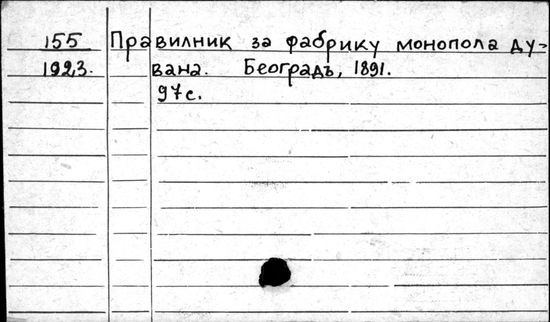 155 Правилник за фабрику монопола ду-
1923. вана. Београдъ, 1891.
97 с.